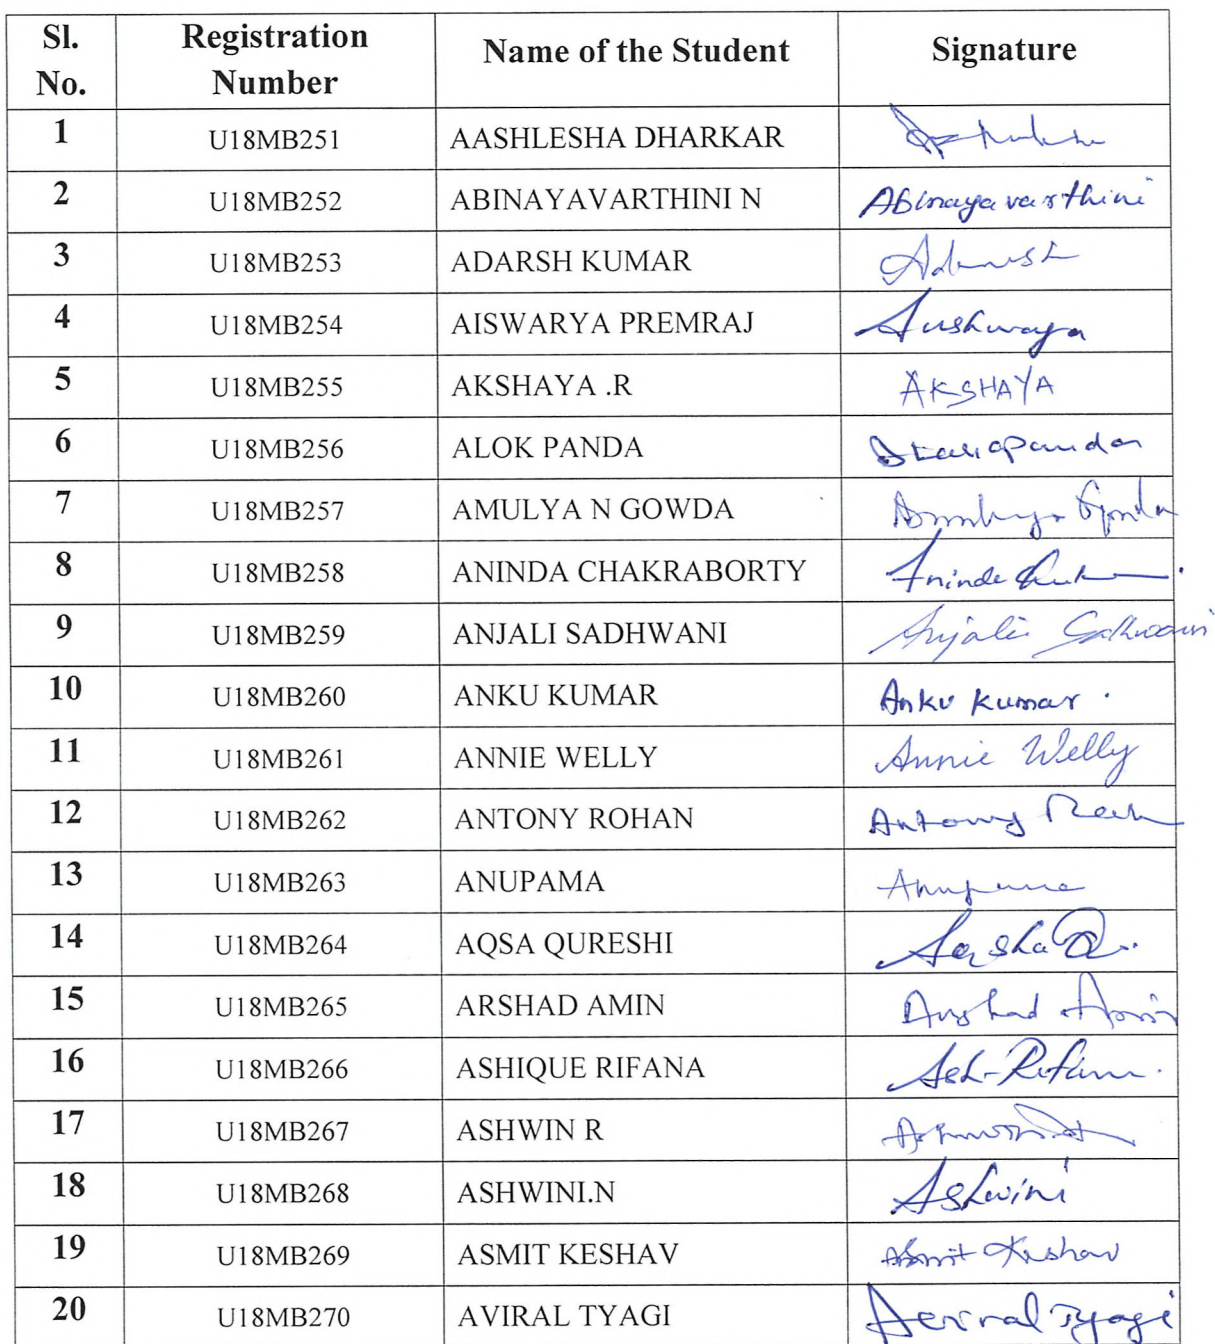 Sl. No. Registration Number Name of the Student Signature
1 U18MB251 AASHLESHA DHARKAR
2 U18MB252 ABINAYAVARTHINI N Abinayavarthini
3 U18MB253 ADARSH KUMAR Adarsh
4 U18MB254 AISWARYA PREMRAJ
5 U18MB255 AKSHAYA .R AKSHAYA
6 U18MB256 ALOK PANDA
7 U18MB257 AMULYA N GOWDA
8 U18MB258 ANINDA CHAKRABORTY
9 U18MB259 ANJALI SADHWANI Anjali Sadhwani
10 U18MB260 ANKU KUMAR Anku Kumar .
11 U18MB261 ANNIE WELLY Annie Welly
12 U18MB262 ANTONY ROHAN Antony
13 U18MB263 ANUPAMA Anupama
14 U18MB264 AQSA QURESHI
15 U18MB265 ARSHAD AMIN Arshad Amin
16 U18MB266 ASHIQUE RIFANA
17 U18MB267 ASHWIN R
18 U18MB268 ASHWINI.N Ashwini
19 U18MB269 ASMIT KESHAV Asmit Keshav
20 U18MB270 AVIRAL TYAGI Aviral Tyagi